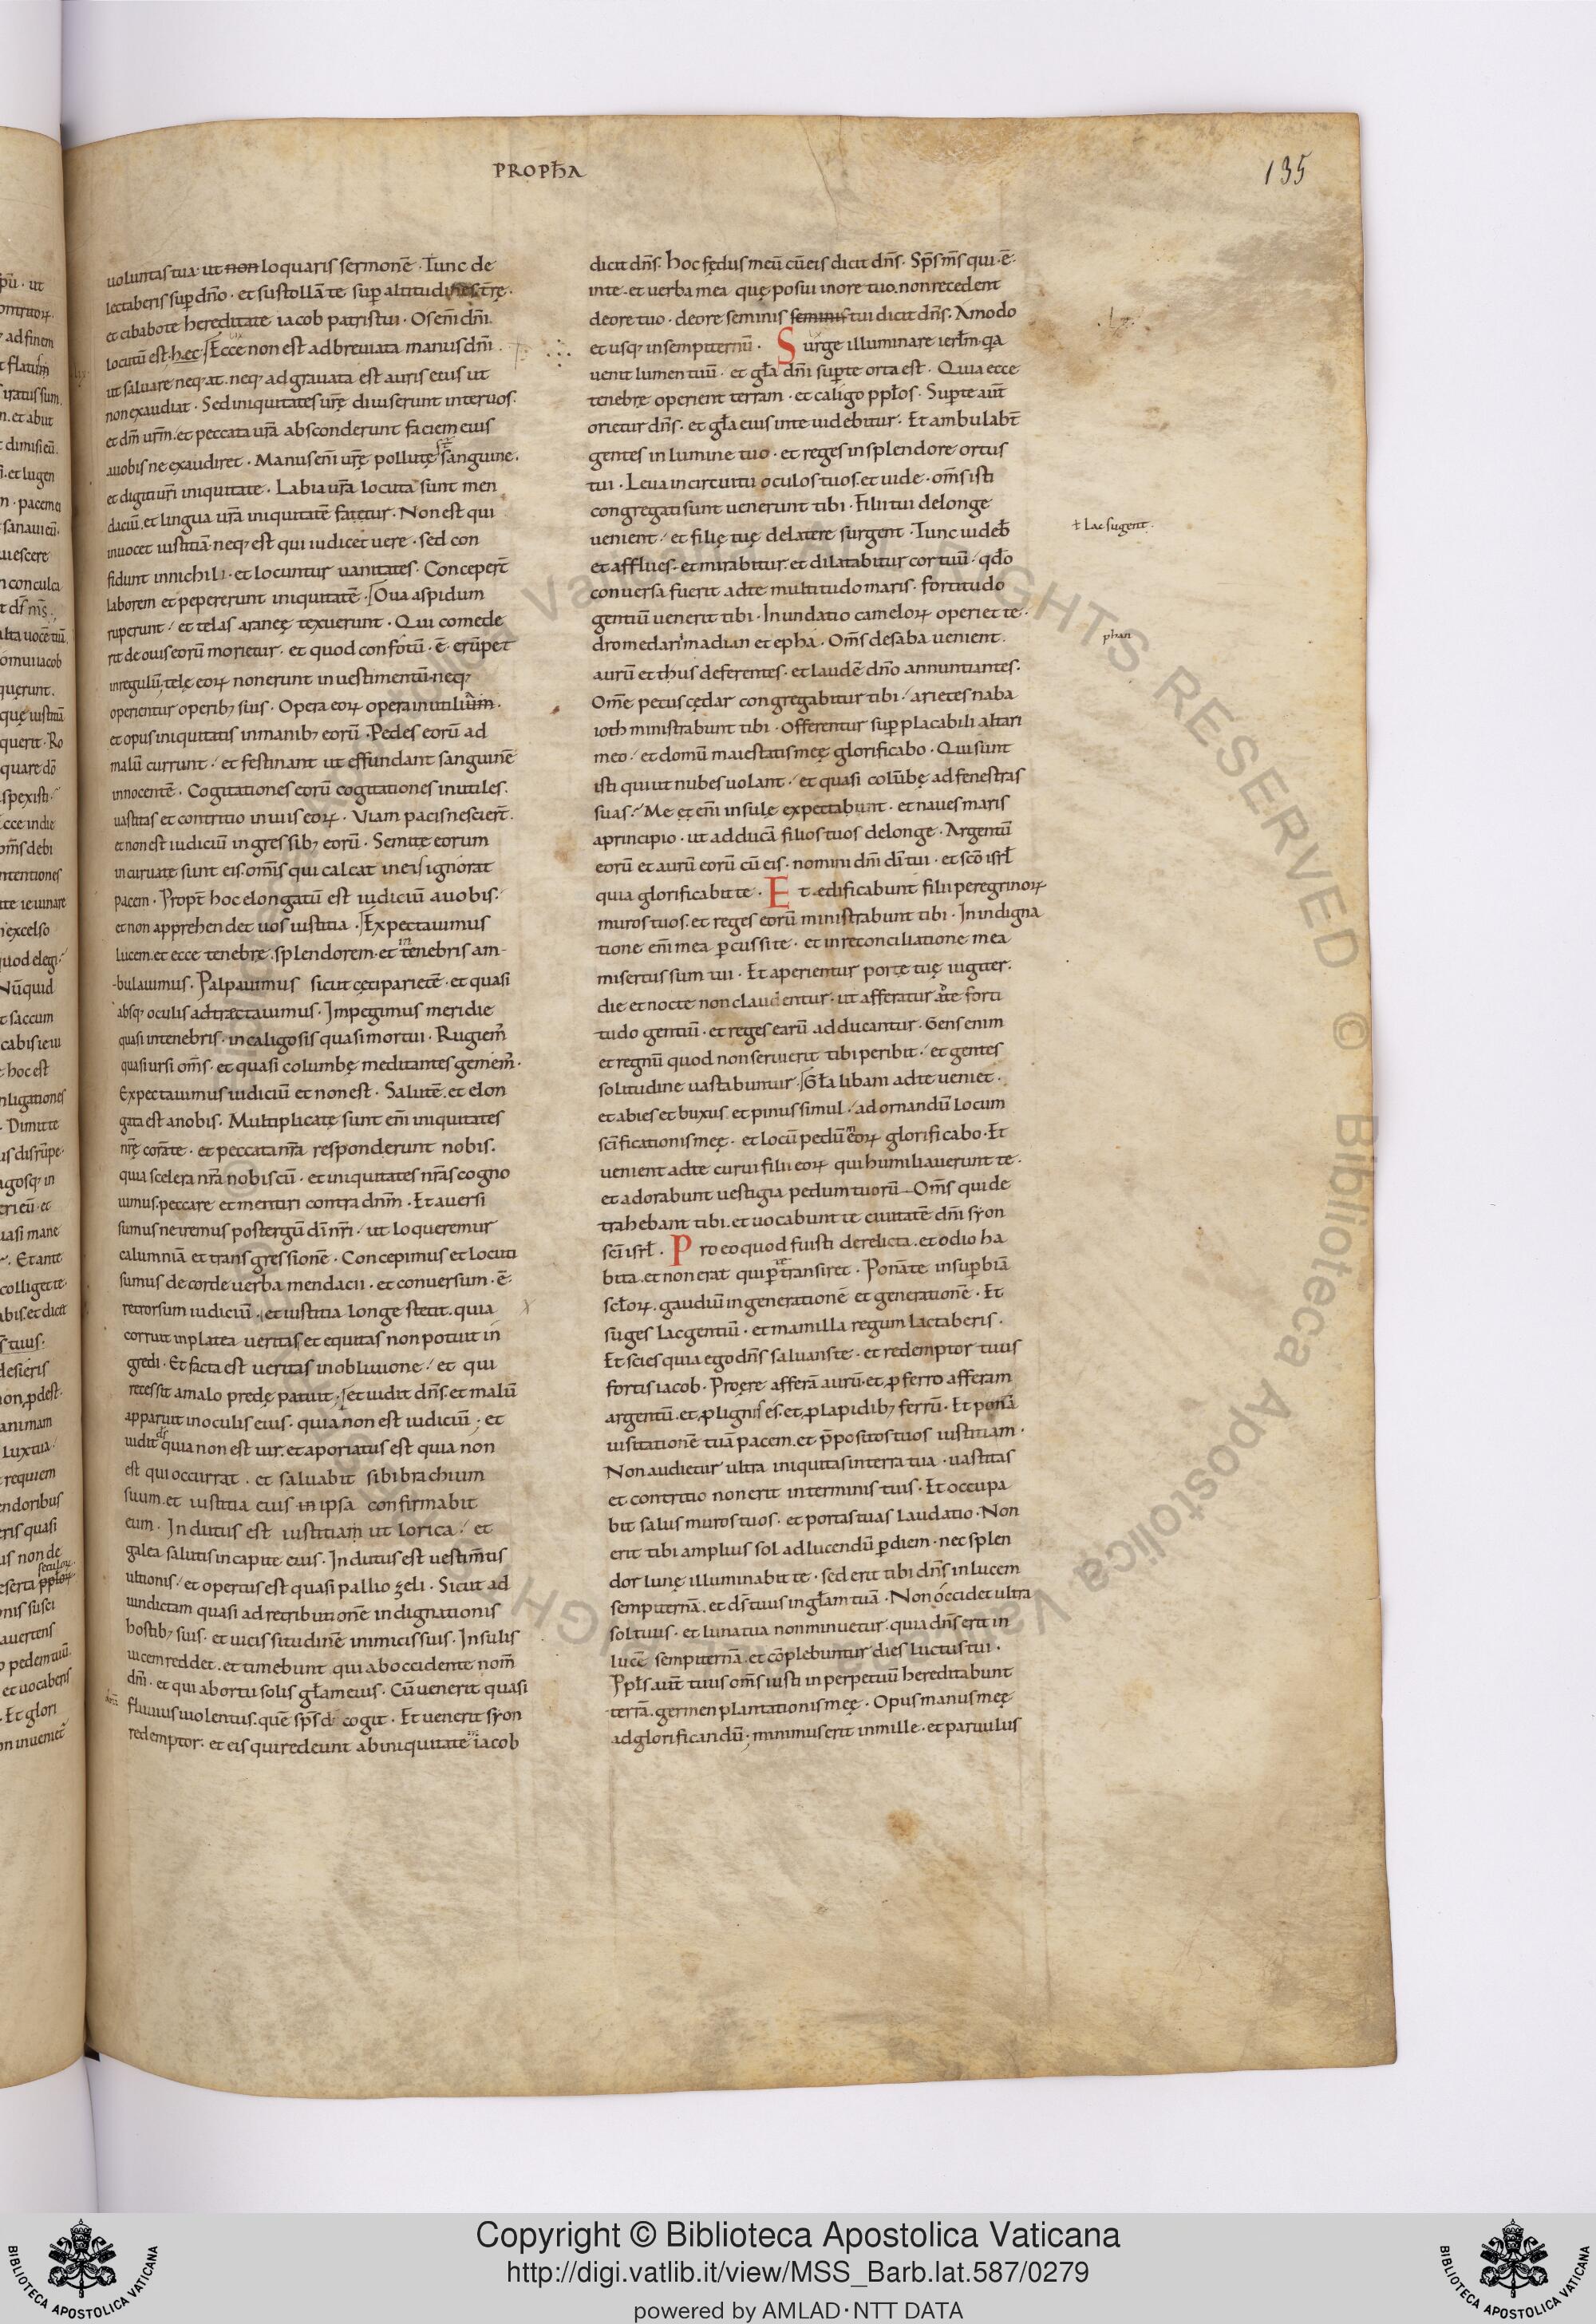 PROPHA
135
uoluntas tua· ut non loquaris sermonē· Tunc de
lectaberis sup dn̄o· et sustollā te sup altitudines tr̄ę·
et cibabo te hereditate iacob patris tui· Os eni dn̄i
locutū est· hęc Ecce non est adbreuiata manus dn̄i·
ut saluare neq; at· neq; adgrauata est auris eius ut
non exaudiat· Sed iniquitates ur̄ę diuiserunt inter uos·
et dm̄ urm̄· et peccata ur̄a absconderunt faciem eius
a uobis ne exaudiret· Manus eni ur̄ę pollutę sanguine·
et digiti ur̄i iniquitate· Labia ur̄a locuta sunt men
daciū· et lingua ur̄a iniquitatē fatetur· Non est qui
inuocet iustitiā· neq; est qui iudicet uere· sed con
fidunt in nichili· et locuntur uanitates· Conceper̄t
laborem et pepererunt iniquitatē· Oua aspidum
ruperunt· et telas araneę texuerunt· Qui comede
rit de ouis eorū morietur· et quod confotū· ē· erūpet
in regulū; telę eorꝝ non erunt in uestimentū· neq;
operientur operib; suis· Opera eorꝝ opera inutilium·
et opus iniquitatis in manib; eorū· Pedes eorū ad
malū currunt· et festinant ut effundant sanguinē
innocentē· Cogitationes eorū cogitationes inutiles·
uastitas et contritio in uiis eorꝝ· Viam pacis nescier̄t·
et non est iudiciū in gressib; eorū· Semite eorum
incuruate sunt eis· om̄is qui calcat in eis ignorat
pacem· Propt̄ hoc elongatū est iudiciū a uobis·
et non apprehendet uos iustitia· Expectauimus
lucem· et ecce tenebrę· splendorem· et in tenebris am-
-bulauimus· Palpauimus sicut cęci parietē· et quasi
absq; oculis adtrectauimus· Impegimus meridie
quasi in tenebris· in caligosis quasi mortui· Rugiem̄
quasi ursi om̄s· et quasi columbę meditantes gemem̄·
Expectauimus iudiciū et non est· Salutē· et elon
gata est a nobis· Multiplicatę sunt eni iniquitates
nr̄ę corā te· et peccata nr̄a responderunt nobis·
quia scelera nr̄a nobiscū· et iniquitates nr̄as cogno
uimus· peccare et mentiri contra dn̄m· Et auersi
sumus ne iremus post ergū di nr̄i· ut loqueremur
calumniā et transgressionē· Concepimus et locuti
sumus de corde uerba mendacii· et conuersum· ē·
retrorsum iudiciū· et iustitia longe stetit· quia
corruit in platea ueritas et equitas non potuit in
gredi· Et facta est ueritas in obliuione· et qui
recessit a malo predę patuit; et uidit dn̄s· et malū
apparuit in oculis eius· quia non est iudiciū; et
uidit ds̄ quia non est uir· et aporiatus est quia non
est qui occurrat· et saluabit sibi brachium
suum· et iustitia eius in ipsa confirmabit
eum· Indutus est iustitiam ut lorica· et
galea salutis in capite eius· Indutus est uestim̄tis
ultionis· et opertus est quasi pallio zeli· Sicut ad
uindictam quasi ad retributionē indignationis
hostib; suis· et uicissitudinē inimicis suis· Insulis
uicem reddet· et timebunt qui ab occidente nom̄
dn̄i· et qui ab ortu solis gl̄am eius· Cū uenerit quasi
fluuius uiolentus· quē sp̄s dn̄i cogit· Et uenerit syon
redemptor· et eis qui redeunt ab iniquitate in iacob
dicit dn̄s· hoc fędus meū cū eis dicit dn̄s· Sp̄s m̄s qui· ē·
in te· et uerba mea quę posui in ore tuo· non recedent
de ore tuo· de ore seminis seminis tui dicit dn̄s· Amodo
et usq; in sempiternū· Surge illuminare ierl̄m· q̄a
uenit lumen tuū· et gl̄a dn̄i sup te orta est· Quia ecce
tenebrę operient terram· et caligo ppl̄os· Sup te aūt
orietur dn̄s· et gl̄a eius in te uidebitur· Et ambulab̄t
gentes in lumine tuo· et reges in splendore ortus
tui· Leua in circuitu oculos tuos· et uide· om̄s isti
congregati sunt uenerunt tibi· Filii tui de longe
uenient· et filię tuę de latere surgent· Tunc uideb̄
t Lac sugent·
et afflues· et mirabitur· et dilatabitur cor tuū· qd̄o
conuersa fuerit ad te multitudo maris· fortitudo
gentiū uenerit tibi· Inundatio camelorꝝ operiet te·
dromedarii madian et epha· Om̄s de saba uenient·
phan
aurū et thus deferentes· et laudē dn̄o annuntiantes·
Om̄e pecus cędar congregabitur tibi· arietes naba
ioth ministrabunt tibi· Offerentur sup placabili altari
meo· et domū maiestatis meę glorificabo· Qui sunt
isti qui ut nubes uolant· et quasi colūbę ad fenestras
suas· Me et eni insulę expectabunt· et naues maris
a principio· ut adducā filios tuos de longe· Argentū
eorū et aurū eorū cū eis· nomini dn̄i di tui· et sc̄o isrl̄
quia glorificabit te· Et edificabunt filii peregrinorꝝ
muros tuos· et reges eorū ministrabunt tibi· In indigna
tione eni mea pcussi te· et in reconciliatione mea
misertus sum tui· Et aperientur portę tuę iugiter·
die et nocte non claudentur· ut afferatur ad te forti
tudo gentiū· et reges earū adducantur· Gens enim
et regnū quod non seruierit tibi peribit· et gentes
solitudine uastabuntur· Gl̄a libani ad te ueniet·
et abies et buxus et pinus simul· ad ornandū locum
scīficationis meę· et locū pedū meorꝝ glorificabo· Et
uenient ad te curui filii eorꝝ qui humiliauerunt te·
et adorabunt uestigia pedum tuorū Om̄s qui de
trahebant tibi· et uocabunt te ciuitatē dn̄i syon
sc̄i isrl̄· Pro eo quod fuisti derelicta· et odio ha
bita· et non erat qui p te transiret· Ponā te in supbiā
scl̄orꝝ· gaudiū in generationē et generationē· Et
suges lac gentiū· et mamilla regum lactaberis·
Et scies quia ego dn̄s saluans te· et redemptor tuus
fortis iacob· Pro ęre afferā aurū· et p ferro afferam
argentū· et p lignis es· et p lapidib; ferrū· Et ponā
uisitationē tuā pacem· et p̄positos tuos iustitiam·
Non audietur ultra iniquitas in terra tua· uastitas
et contritio non erit in terminis tuis· Et occupa
bit salus muros tuos· et portas tuas laudatio· Non
erit tibi amplius sol ad lucendū p diem· nec splen
dor lunę illuminabit te· sed erit tibi dn̄s in lucem
sempiternā· et ds̄ tuus in gl̄am tuā· Non occidet ultra
sol tuus· et luna tua non minuetur· quia dn̄s erit in
lucē sempiternā· et cōplebuntur dies luctus tui·
Ppl̄s aūt tuus om̄s iusti in perpetuū hereditabunt
terrā· germen plantationis meę· Opus manus meę
ad glorificandū; minimus erit in mille· et paruulus
Copyright © Biblioteca Apostolica Vaticana
http://digi.vatlib.it/view/MSS_Barb.lat.587/0279
powered by AMLAD·NTT DATA
BIBLIOTECA APOSTOLICA VATICANA
BIBLIOTECA APOSTOLICA VATICANA